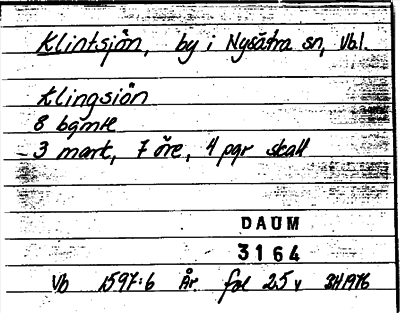 Klintsjön, by i Nysätra sn, Vb l.
Klingsiön
8 bgmtl
3 mark, 7 öre, 4 pgr skatt
DAUM
3164
Vb 1597:6 År fol 25 v SH 1976